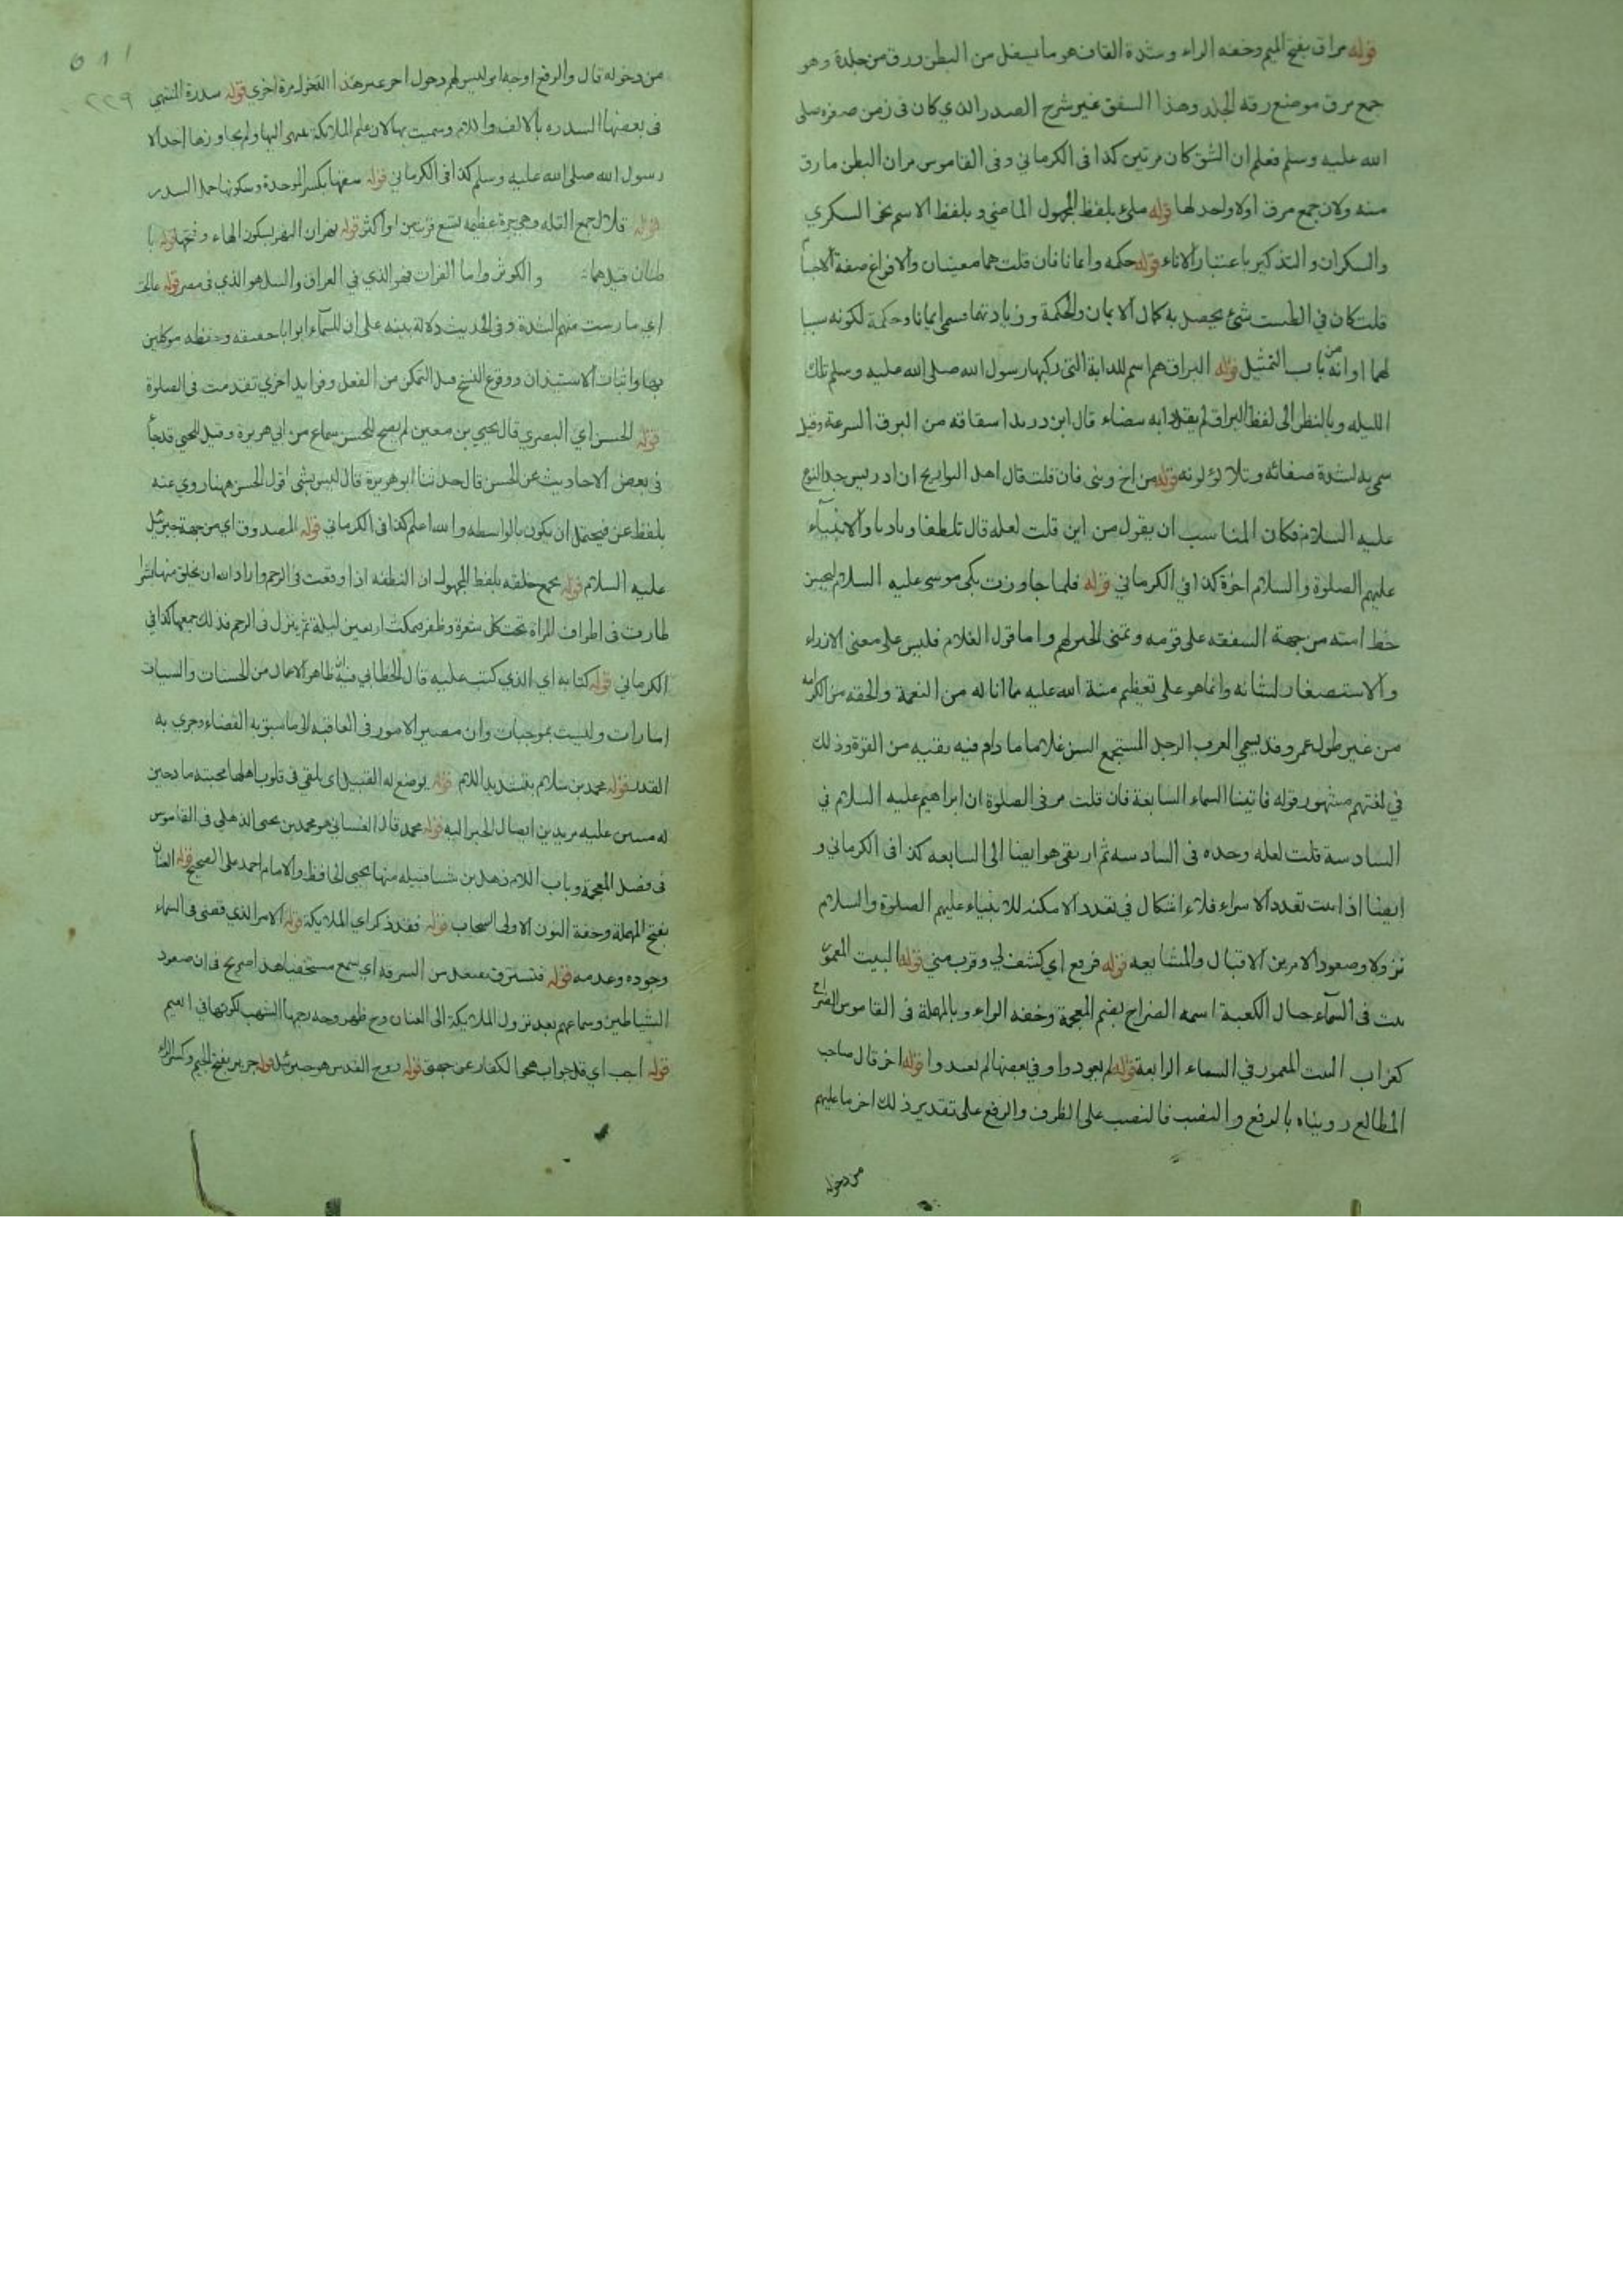 قوله مراق بفتح الميم وخفه الراء وشدة القاف هو ما سفل من البطن ورق من جلده وهو
جمع مرق موضع رقه الجلد وهذا السفق غير شرح الصدر الذي كان في زمن صغره صلى
الله عليه وسلم فعلم ان الشق كان مرتين كذا في الكرماني وفي القاموس مراق البطن مارق
منه ولان جمع مرق اولا واحد لها قوله ملئ بلفظ المجهول الماضي و بلفظ الاسم نحو السكري
والسكران والتذكير باعتبار الاناء قوله حكمه وايمانا فان قلت هما معنيان والافراغ صفة الاجسام
قلت كان في الطست شئ يحصل به كمال الايمان والحكمة وزيادتهما فسمي ايمانا وحكمة لكونه سببا
لهما او انه من باب التمثيل قوله البراق هو اسم للدابة التي ركبها رسول الله صلى الله عليه وسلم تلك
الليله وبالنظر الى لفظ البراق لم يقل دابه بيضاء قال ابن دريد اشتقاقه من البرق السرعة وقيل
سمي به لشدة صفائه وتلالؤ لونه قوله من اخ ونبي فان قلت قال اهل التواريخ ان ادريس جد النوح
عليه السلام فكان المناسب ان يقول من ابن قلت لعله قال تلطفا وتادبا والانبياء
عليهم الصلوة والسلام اخوة كذا في الكرماني قوله فلما جاوزت بكى موسى عليه السلام ليحين
حظ امته من جهة الشفقه على قومه وتمنى الخير لهم واما قول الغلام فليس على معنى الازراء
والاستصغار لشانه وانما هو على تعظيم منة الله عليه مما اناله من النعمة والحقه من الكرامه
من غير طول عمر وقد يسمي العرب الرجل المستجمع السن غلاما ما دام فيه بقيه من القوة وذلك
في لغتهم مشهور قوله فاتينا السماء السابعة فان قلت مر في الصلوة ان ابراهيم عليه السلام في
السادسة قلت لعله وجده في السادسه ثم ارتقى هو ايضا الى السابعه كذا في الكرماني و
ايضا اذا ثبت تعدد الاسراء فلا اشكال في تعدد الامكنه للانبياء عليهم الصلوة والسلام
نزولا وصعودا لامرين الاقبال والمشايعه قوله فرفع اي كشف لي وقرب مني قوله البيت المعمور
بيت في السماء حيال الكعبة اسمه الضراح بضم المعجمة وخفه الراء وبالمهملة في القاموس الضراح
كغراب البيت المعمور في السماء الرابعة قوله لم يعودوا وفي بعضها لم يعدوا قوله اخر قال صاحب
المطالع رويناه بالرفع والنصب فالنصب على الظرف والرفع على تقدير ذلك اخر ما عليهم
من دخوله
٥١١
٢٢٩
من دخوله قال والرفع اوجه اي وليس لهم دخول اخر غير هذا الدخول مرة اخرى قوله سدرة المنتهى
في بعضها السدره بالالف واللام وسميت بها لان علم الملائكة ينتهي اليها ولم يجاوزها احد الا
رسول الله صلى الله عليه وسلم كذا في الكرماني قوله نبقها بكسر الموحدة وسكونها حمل السدر
قوله قلال جمع القله وهي جرة عظيمه تسع قربتين او اكثر قوله نهران النهر بسكون الهاء وفتحها قوله با
طنان قيل هما والكوثر واما الفرات فهو الذي في العراق والنيل هو الذي في مصر قوله عالجت
اي مارست منهم الشدة وفي الحديث دلالة بينه على ان للسماء ابوابا حقيقه وحفظه موكلين
بها واثبات الاستيذان ووقوع النسخ قبل التمكن من الفعل وفوايد اخرى تقدمت في الصلوة
قوله الحسن اي البصري قال يحيى بن معين لم يصح للحسن سماع من ابي هريرة وقيل ليحيى قد جاء
في بعض الاحاديث عن الحسن قال حدثنا ابو هريرة قال ليس بشئ اقول الحسن ههنا روى عنه
بلفظ عن فيحتمل ان يكون بالواسطه والله اعلم كذا في الكرماني قوله المصدوق اي من جهة جبرئيل
عليه السلام قوله يجمع خلقه بلفظ المجهول ان النطفه اذا وقعت في الرحم واراد الله ان يخلق منها بشرا
طارت في اطراف المراة تحت كل شعرة وظفر فمكث اربعين ليلة ثم ينزل في الرحم فذلك جمعها كذا في
الكرماني قوله كتابه اي الذي كتب عليه قال الخطابي فيه ان ظاهر الاعمال من الحسنات والسيات
امارات وليست بموجبات وان مصير الامور في العاقبه الى ما سبق به القضاء وجرى به
القدر قوله محمد بن سلام بتشديد اللام قوله يوضع له القبول اي يلقي في قلوب اهلها محبته مادحين
له مثنين عليه مريدين ايصال الخير اليه قوله محمد قال الغساني هو محمد بن يحيى الذهلي في القاموس
في فصل المعجمة وباب اللام ذهل بن شيبا قبيله منها يحيى الحافظ والامام احمد على الصحيح قوله العنان
بفتح المهملة وخفة النون الاولى السحاب قوله فتذكر اي الملائكة قوله الامر الذي قضى في السماء
وجوده وعدمه قوله فتسترق تفتعل من السرقة اي تسمع مستخفيا هذا صريح في ان صعود
الشياطين وسماعهم بعد نزول الملائيكة الى العنان وح ظهر وجه رجمها الشهب لكونها في
قوله اجب اي قل جواب هجو الكفار عن جهتي قوله روح القدس هو جبرئيل قوله جرير بفتح الجيم وكسر الراء